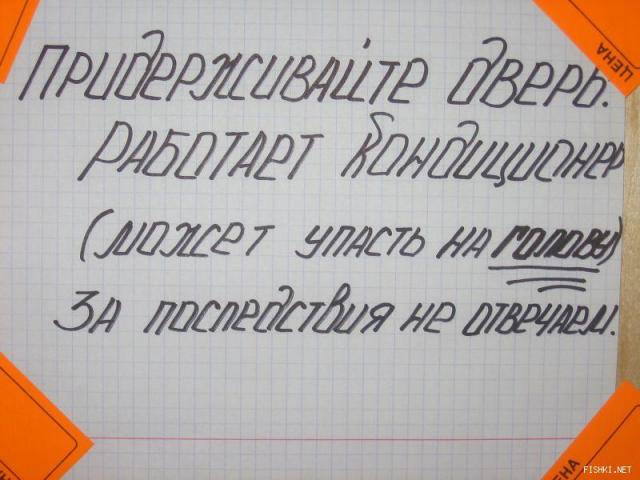 ЦЕНА
Придерживайте дверь.
Работает кондиционер
(может упасть на голову)
За последствия не отвечаем.
ЦЕНА
FISHKI.NET